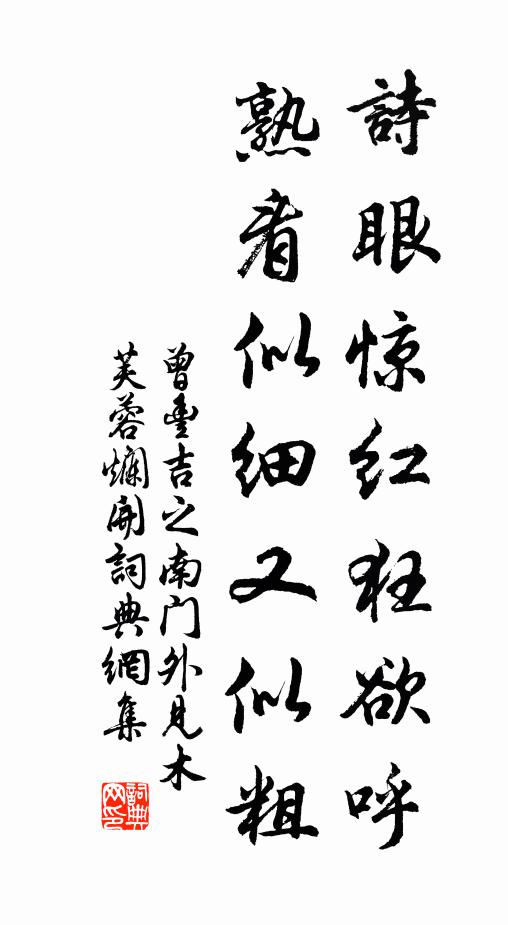 詩眼惊红狂欲呼
熟看似细又似粗
曾豊吉之南门外見木
芙蓉爛開詞典網集
詞典
网印